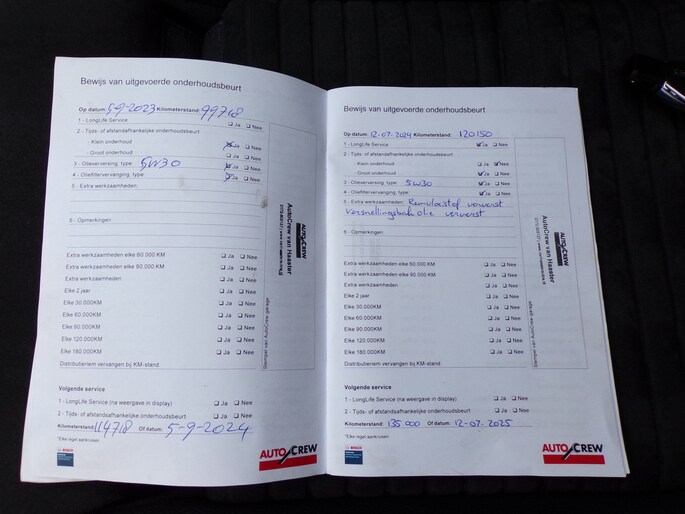 Bewijs van uitgevoerde onderhoudsbeurt
Op datum: 5-9-2023 Kilometerstand: 99718
1 - LongLife Service Ja Nee
2 - Tijds- of afstandsafhankelijke onderhoudsbeurt
- Klein onderhoud Ja Nee
- Groot onderhoud Ja Nee
3 - Olieverversing, type: 5W30 Ja Nee
4 - Oliefiltervervanging, type: Ja Nee
5 - Extra werkzaamheden:
6 - Opmerkingen:
AutoCrew van Haaster
AUTO CREW
Extra werkzaamheden elke 60.000 KM Ja Nee
Extra werkzaamheden elke 90.000 KM Ja Nee
Extra werkzaamheden Ja Nee
Elke 2 jaar Ja Nee
Elke 30.000KM Ja Nee
Elke 60.000 KM Ja Nee
Elke 90.000KM Ja Nee
Elke 120.000KM Ja Nee
Elke 180.000 KM Ja Nee
Distributieriem vervangen bij KM-stand:
Stempel van AutoCrew-garage
Volgende service
1 - LongLife Service (na weergave in display) Ja Nee
2 - Tijds- of afstandsafhankelijke onderhoudsbeurt Ja Nee
Kilometerstand: 114718 Of datum: 5-9-2024
*Elke regel aankruisen
BOSCH
AUTO CREW
Bewijs van uitgevoerde onderhoudsbeurt
Op datum: 12-07-2024 Kilometerstand: 120150
1 - LongLife Service Ja Nee
2 - Tijds- of afstandsafhankelijke onderhoudsbeurt
- Klein onderhoud Ja Nee
- Groot onderhoud Ja Nee
3 - Olieverversing, type: 5W30 Ja Nee
4 - Oliefiltervervanging, type: Ja Nee
5 - Extra werkzaamheden: Remvloeistof ververst
versnellingsbak olie ververst
6 - Opmerkingen:
AutoCrew van Haaster
AUTO CREW
Extra werkzaamheden elke 60.000 KM Ja Nee
Extra werkzaamheden elke 90.000 KM Ja Nee
Extra werkzaamheden Ja Nee
Elke 2 jaar Ja Nee
Elke 30.000KM Ja Nee
Elke 60.000 KM Ja Nee
Elke 90.000KM Ja Nee
Elke 120.000KM Ja Nee
Elke 180.000KM Ja Nee
Distributieriem vervangen bij KM-stand:
Stempel van AutoCrew-garage
Volgende service
1 - LongLife Service (na weergave in display) Ja Nee
2 - Tijds- of afstandsafhankelijke onderhoudsbeurt Ja Nee
Kilometerstand: 135.000 Of datum: 12-07-2025
*Elke regel aankruisen
BOSCH
AUTO CREW